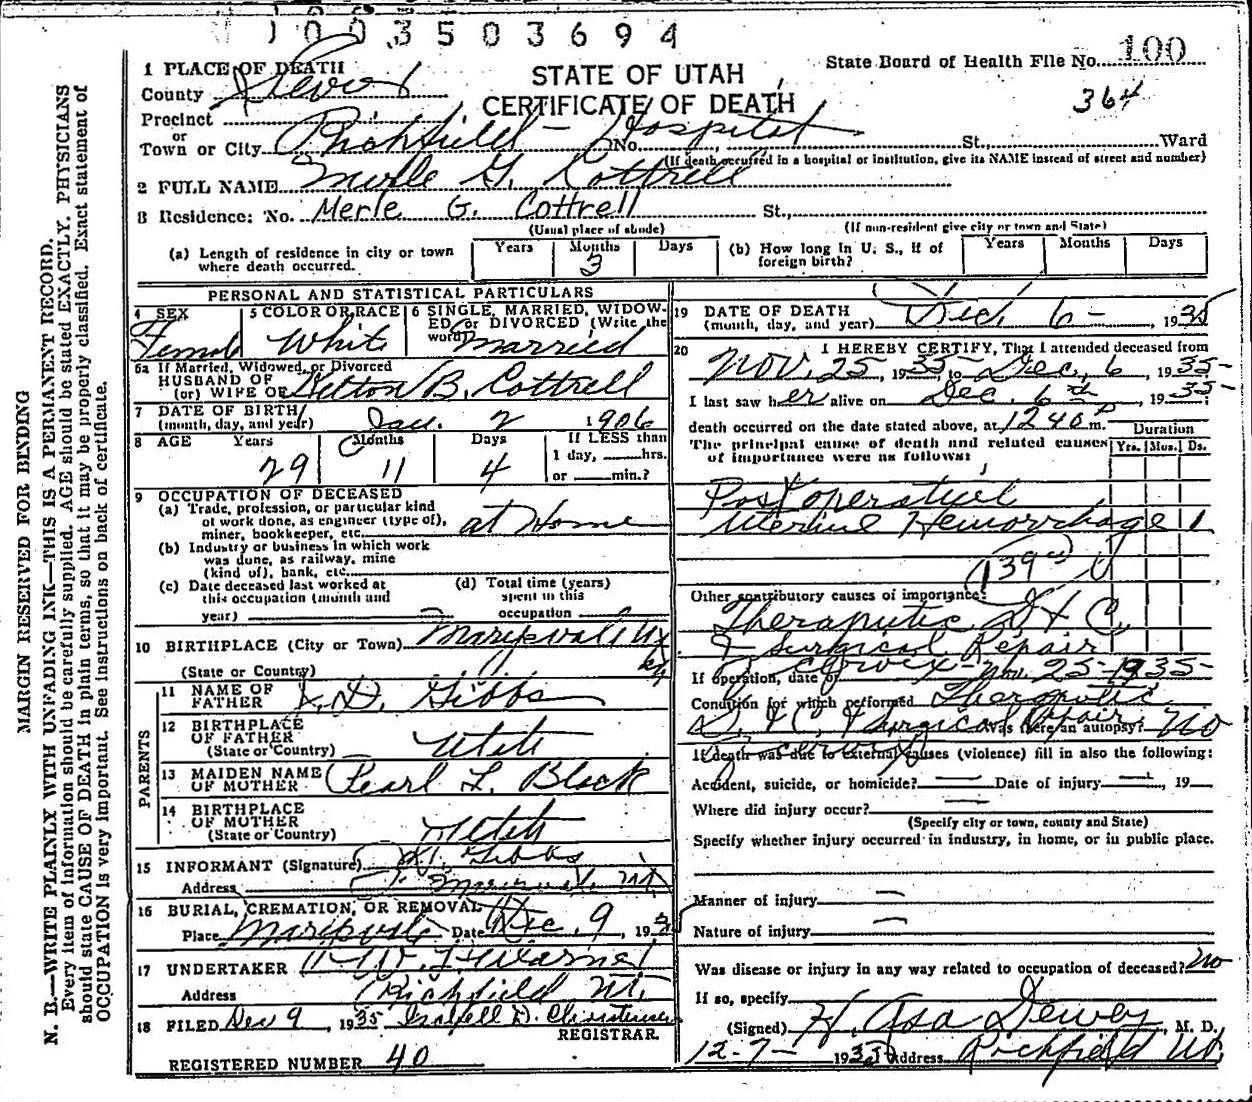 1003503694
1 PLACE OF DEATH
STATE OF UTAH
CERTIFICATE OF DEATH
State Board of Health File No. 100
364
County Sevier
Precinct
or
Town or City Richfield - Hospital No. St., Ward
(If death occurred in a hospital or institution, give its NAME instead of street and number)
2 FULL NAME Merle G. Cottrell
3 Residence: No. Merle G. Cottrell St.,
(Usual place of abode) (If non-resident give city or town and State)
(a) Length of residence in city or town where death occurred. Years Months 3 Days
(b) How long in U. S., if of foreign birth? Years Months Days
PERSONAL AND STATISTICAL PARTICULARS
4 SEX Female
5 COLOR OR RACE White
6 SINGLE, MARRIED, WIDOWED or DIVORCED (Write the word) Married
6a If Married, Widowed, or Divorced
HUSBAND OF
(or) WIFE OF Delton B. Cottrell
7 DATE OF BIRTH
(month, day, and year) Jan. 2 1906
8 AGE Years 29 Months 11 Days 4 If LESS than 1 day, hrs. or min.?
9 OCCUPATION OF DECEASED
(a) Trade, profession, or particular kind of work done, as engineer (type of), miner, bookkeeper, etc. at Home
(b) Industry or business in which work was done, as railway, mine (kind of), bank, etc.
(c) Date deceased last worked at this occupation (month and year)
(d) Total time (years) spent in this occupation
10 BIRTHPLACE (City or Town) Marysvale
(State or Country)
PARENTS
11 NAME OF FATHER D. Gibbs
12 BIRTHPLACE OF FATHER
(State or Country) Utah
13 MAIDEN NAME OF MOTHER Pearl L. Black
14 BIRTHPLACE OF MOTHER
(State or Country) Utah
15 INFORMANT (Signature) Gibbs
Address Ut
16 BURIAL, CREMATION, OR REMOVAL
Place Marysvale Date Dec. 9, 193
17 UNDERTAKER
Address Richfield Ut.
18 FILED Dec 9, 1935 Christensen
REGISTRAR.
REGISTERED NUMBER 40
19 DATE OF DEATH
(month, day, and year) Dec. 6 - 1935
20 I HEREBY CERTIFY, That I attended deceased from
Nov. 25, 1935 to Dec. 6, 1935
I last saw her alive on Dec. 6th, 1935
death occurred on the date stated above, at 1240 P m. Duration
The principal cause of death and related causes of importance were as follows: Yrs. Mos. Ds.
Post operative
Uterine Hemorrhage 1
139
Other contributory causes of importance:
Therapeutic D & C,
& Surgical Repair
of Cervix
If operation, date of Nov. 25 - 1935
Condition for which performed Therapeutic
D. & C. & Surgical Repair Was there an autopsy? No
If death was due to external causes (violence) fill in also the following:
Accident, suicide, or homicide? — Date of injury —, 19—
Where did injury occur? —
(Specify city or town, county and State)
Specify whether injury occurred in industry, in home, or in public place.
Manner of injury —
Nature of injury —
Was disease or injury in any way related to occupation of deceased? No
If so, specify
(Signed) H. Asa Dewey, M. D.
12-7- 1935 Address Richfield Ut.
MARGIN RESERVED FOR BINDING
N. B.—WRITE PLAINLY WITH UNFADING INK—THIS IS A PERMANENT RECORD.
Every item of information should be carefully supplied. AGE should be stated EXACTLY. PHYSICIANS
should state CAUSE OF DEATH in plain terms, so that it may be properly classified. Exact statement of
OCCUPATION is very important. See instructions on back of certificate.